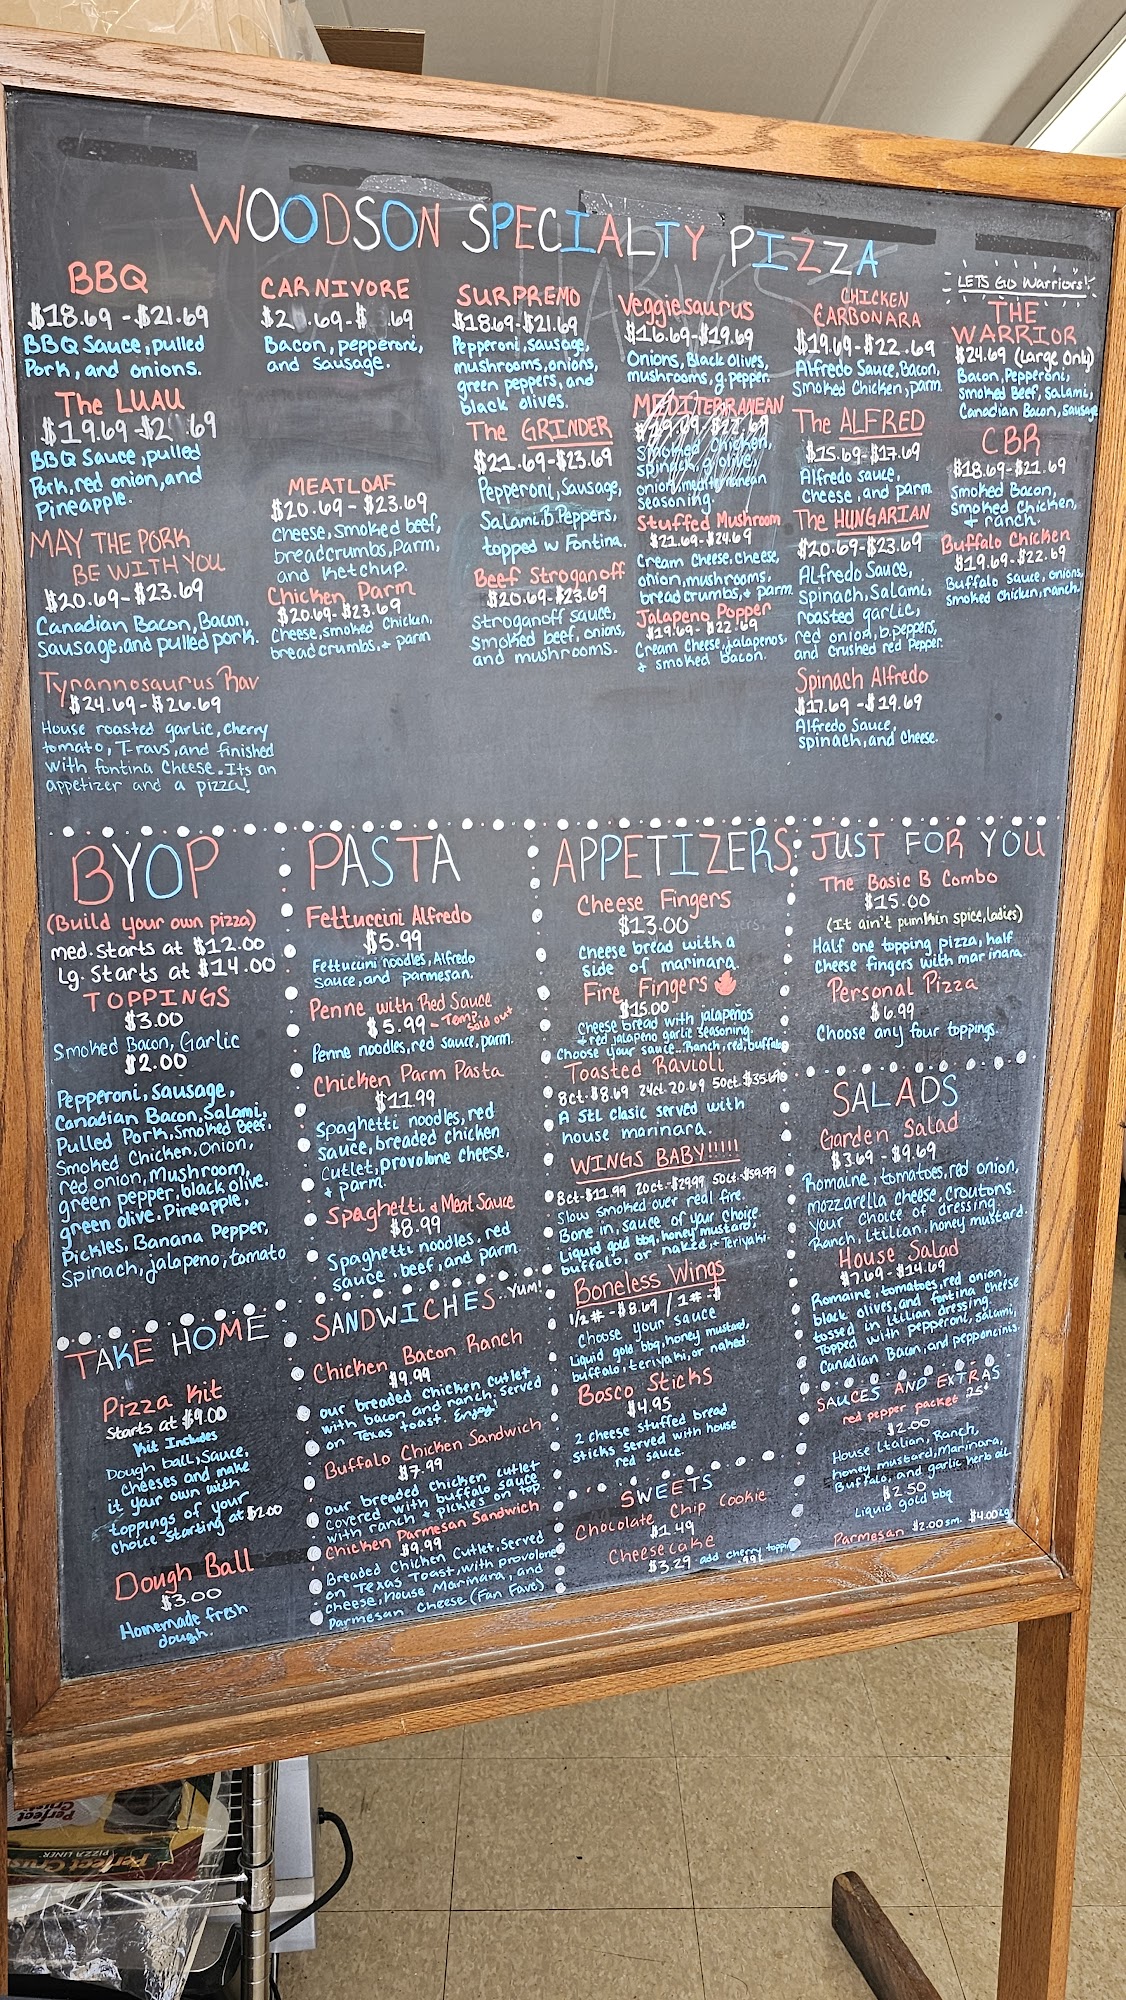 WOODSON SPECIALTY PIZZA
BBQ
$18.69-$21.69
BBQ Sauce, pulled
Pork, and onions.
The LUAU
$19.69-$2 .69
BBQ Sauce, pulled
Pork, red onion, and
Pineapple.
MAY THE PORK
BE WITH YOU
$20.69-$23.69
Canadian Bacon, Bacon,
Sausage, and pulled pork.
Tyrannosaurus Rav
$24.69-$26.69
House roasted garlic, cherry
tomato, T-ravs, and finished
with fontina cheese. Its an
appetizer and a pizza!
CARNIVORE
$2 .69-$ .69
Bacon, pepperoni,
and sausage.
MEATLOAF
$20.69-$23.69
cheese, smoked beef,
breadcrumbs, Parm,
and ketchup.
Chicken Parm
$20.69-$23.69
Cheese, smoked chicken,
breadcrumbs, + parm
SURPREMO
$18.69-$21.69
Pepperoni, sausage,
mushrooms, onions,
green peppers, and
black olives.
The GRINDER
$21.69-$23.69
Pepperoni, Sausage,
Salami, B.Peppers,
topped w Fontina.
Beef Stroganoff
$20.69-$23.69
Stroganoff sauce,
smoked beef, onions,
and mushrooms.
Veggiesaurus
$16.69-$19.69
Onions, Black olives,
mushrooms, g.pepper.
MEDITERRANEAN
$19.69-$22.69
smoked chicken,
spinach, g.olive,
onion, mediterranean
seasoning.
Stuffed Mushroom
$21.69-$24.69
Cream cheese, cheese,
onion, mushrooms,
bread crumbs, + parm
Jalapeno Popper
$19.69-$22.69
Cream Cheese, jalapenos
+ smoked bacon.
CHICKEN
CARBONARA
$19.69-$22.69
Alfredo Sauce, Bacon,
Smoked Chicken, parm
The ALFRED
$15.69-$17.69
Alfredo sauce,
cheese, and parm
The HUNGARIAN
$20.69-$23.69
Alfredo Sauce,
Spinach, Salami,
roasted garlic,
red onion, b.peppers,
and crushed red Pepper.
Spinach Alfredo
$17.69-$19.69
Alfredo Sauce,
spinach, and cheese.
LETS GO Warriors!
THE
WARRIOR
$24.69 (Large Only)
Bacon, Pepperoni,
Smoked Beef, Salami,
Canadian Bacon, Sausage
CBR
$18.69-$21.69
Smoked Bacon,
Smoked Chicken,
+ ranch.
Buffalo Chicken
$19.69-$22.69
Buffalo sauce, onions,
smoked chicken, ranch.
BYOP
(Build your own pizza)
med. starts at $12.00
Lg. Starts at $14.00
TOPPINGS
$3.00
Smoked Bacon, Garlic
$2.00
Pepperoni, Sausage,
Canadian Bacon, Salami,
Pulled Pork, Smoked Beef,
Smoked Chicken, Onion,
red onion, mushroom,
green pepper, black olive,
green olive, Pineapple,
Pickles, Banana Pepper,
Spinach, jalapeno, tomato
TAKE HOME
Pizza Kit
Starts at $9.00
Kit Includes
Dough ball, Sauce,
cheeses and make
it your own with
toppings of your
choice starting at $2.00
Dough Ball
$3.00
Homemade fresh
dough.
PASTA
Fettuccini Alfredo
$5.99
Fettuccini noodles, Alfredo
sauce, and parmesan.
Penne with Red Sauce
$5.99 - Temp. Sold out
Penne noodles, red sauce, parm.
Chicken Parm Pasta
$11.99
Spaghetti noodles, red
sauce, breaded chicken
cutlet, provolone cheese,
+ parm.
Spaghetti + Meat Sauce
$8.99
Spaghetti noodles, red
sauce, beef, and parm.
SANDWICHES YUM!
Chicken Bacon Ranch
$9.99
our breaded chicken cutlet
with bacon and ranch, served
on Texas toast. Enjoy!
Buffalo Chicken Sandwich
$7.99
our breaded chicken cutlet
covered with buffalo sauce
with ranch + pickles on top.
Chicken Parmesan Sandwich
$9.99
Breaded Chicken Cutlet, Served
on Texas Toast, with provolone
cheese, house Marinara, and
Parmesan Cheese (Fan Fave)
APPETIZERS
Cheese Fingers
$13.00
Cheese bread with a
side of marinara.
Fire Fingers
$15.00
Cheese bread with jalapeños
+ red jalapeno garlic seasoning.
Choose your sauce...Ranch, red, buffalo
Toasted Ravioli
8ct-$8.69 24ct-20.69 50ct-$35.69
A STL clasic served with
house marinara.
WINGS BABY!!!!!
8ct-$11.99 20ct-$29.99 50ct-$59.99
Slow smoked over real fire.
Bone in, sauce of your choice.
Liquid gold bbq, honey mustard,
buffalo, or naked, + Teriyaki.
Boneless Wings
1/2#-$8.69 / 1#-$
Choose your sauce
Liquid gold bbq, honey mustard,
buffalo, teriyaki, or naked.
Bosco Sticks
$4.95
2 cheese stuffed bread
sticks served with house
red sauce.
SWEETS
Chocolate Chip Cookie
$1.49
Cheesecake
$3.29 add cherry topping .99¢
JUST FOR YOU
The Basic B Combo
$15.00
(It ain't pumpkin spice, ladies)
Half one topping pizza, half
cheese fingers with marinara.
Personal Pizza
$6.99
Choose any four toppings.
SALADS
Garden Salad
$3.69-$9.69
Romaine, tomatoes, red onion,
mozzarella cheese, croutons.
your choice of dressing
Ranch, Itilian, honey mustard.
House Salad
$7.69-$14.69
Romaine, tomatoes, red onion,
black olives, and fontina cheese
tossed in Itilian dressing.
Topped with pepperoni, salami,
Canadian Bacon, and pepproncinis.
SAUCES AND EXTRAS
red pepper packet 25¢
$2.00
House Italian, Ranch,
honey mustard, marinara,
Buffalo, and garlic herb oil
$2.50
Liquid gold bbq
Parmesan $2.00 sm. $4.00 Lg
Perfect Crust
PIZZA LINER